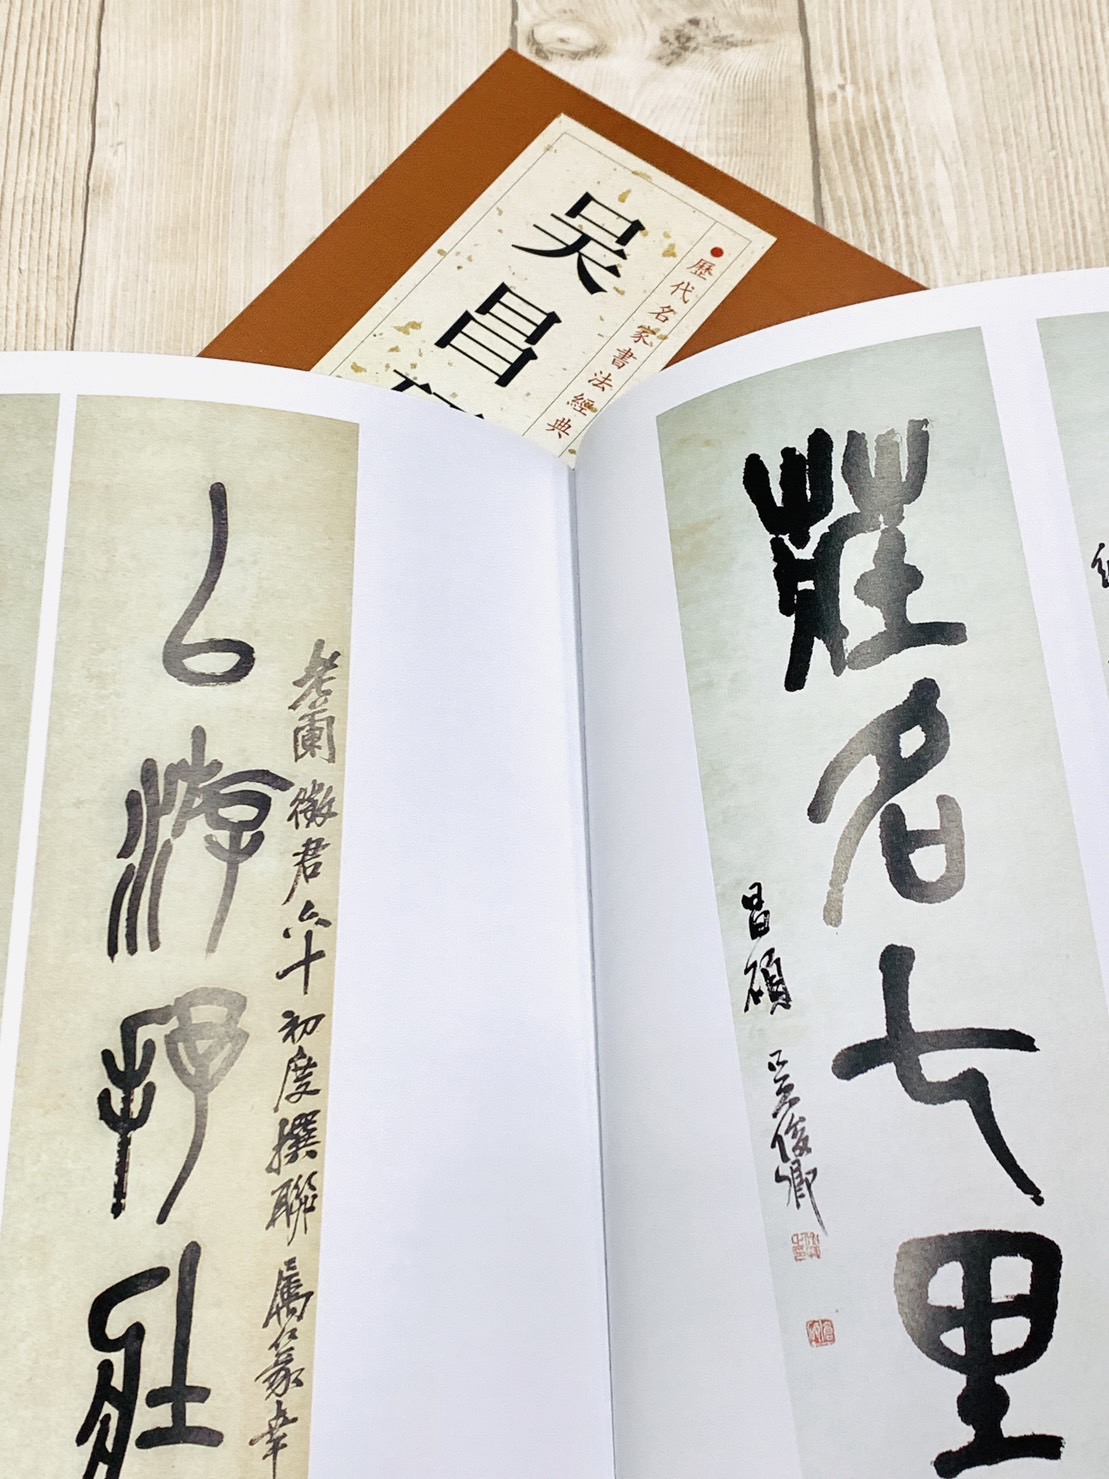 歷代名家書法經典
吳昌
莊名七里
昌碩 吳俊卿
老蘭徵君六十初度撰聯屬篆幸
以游